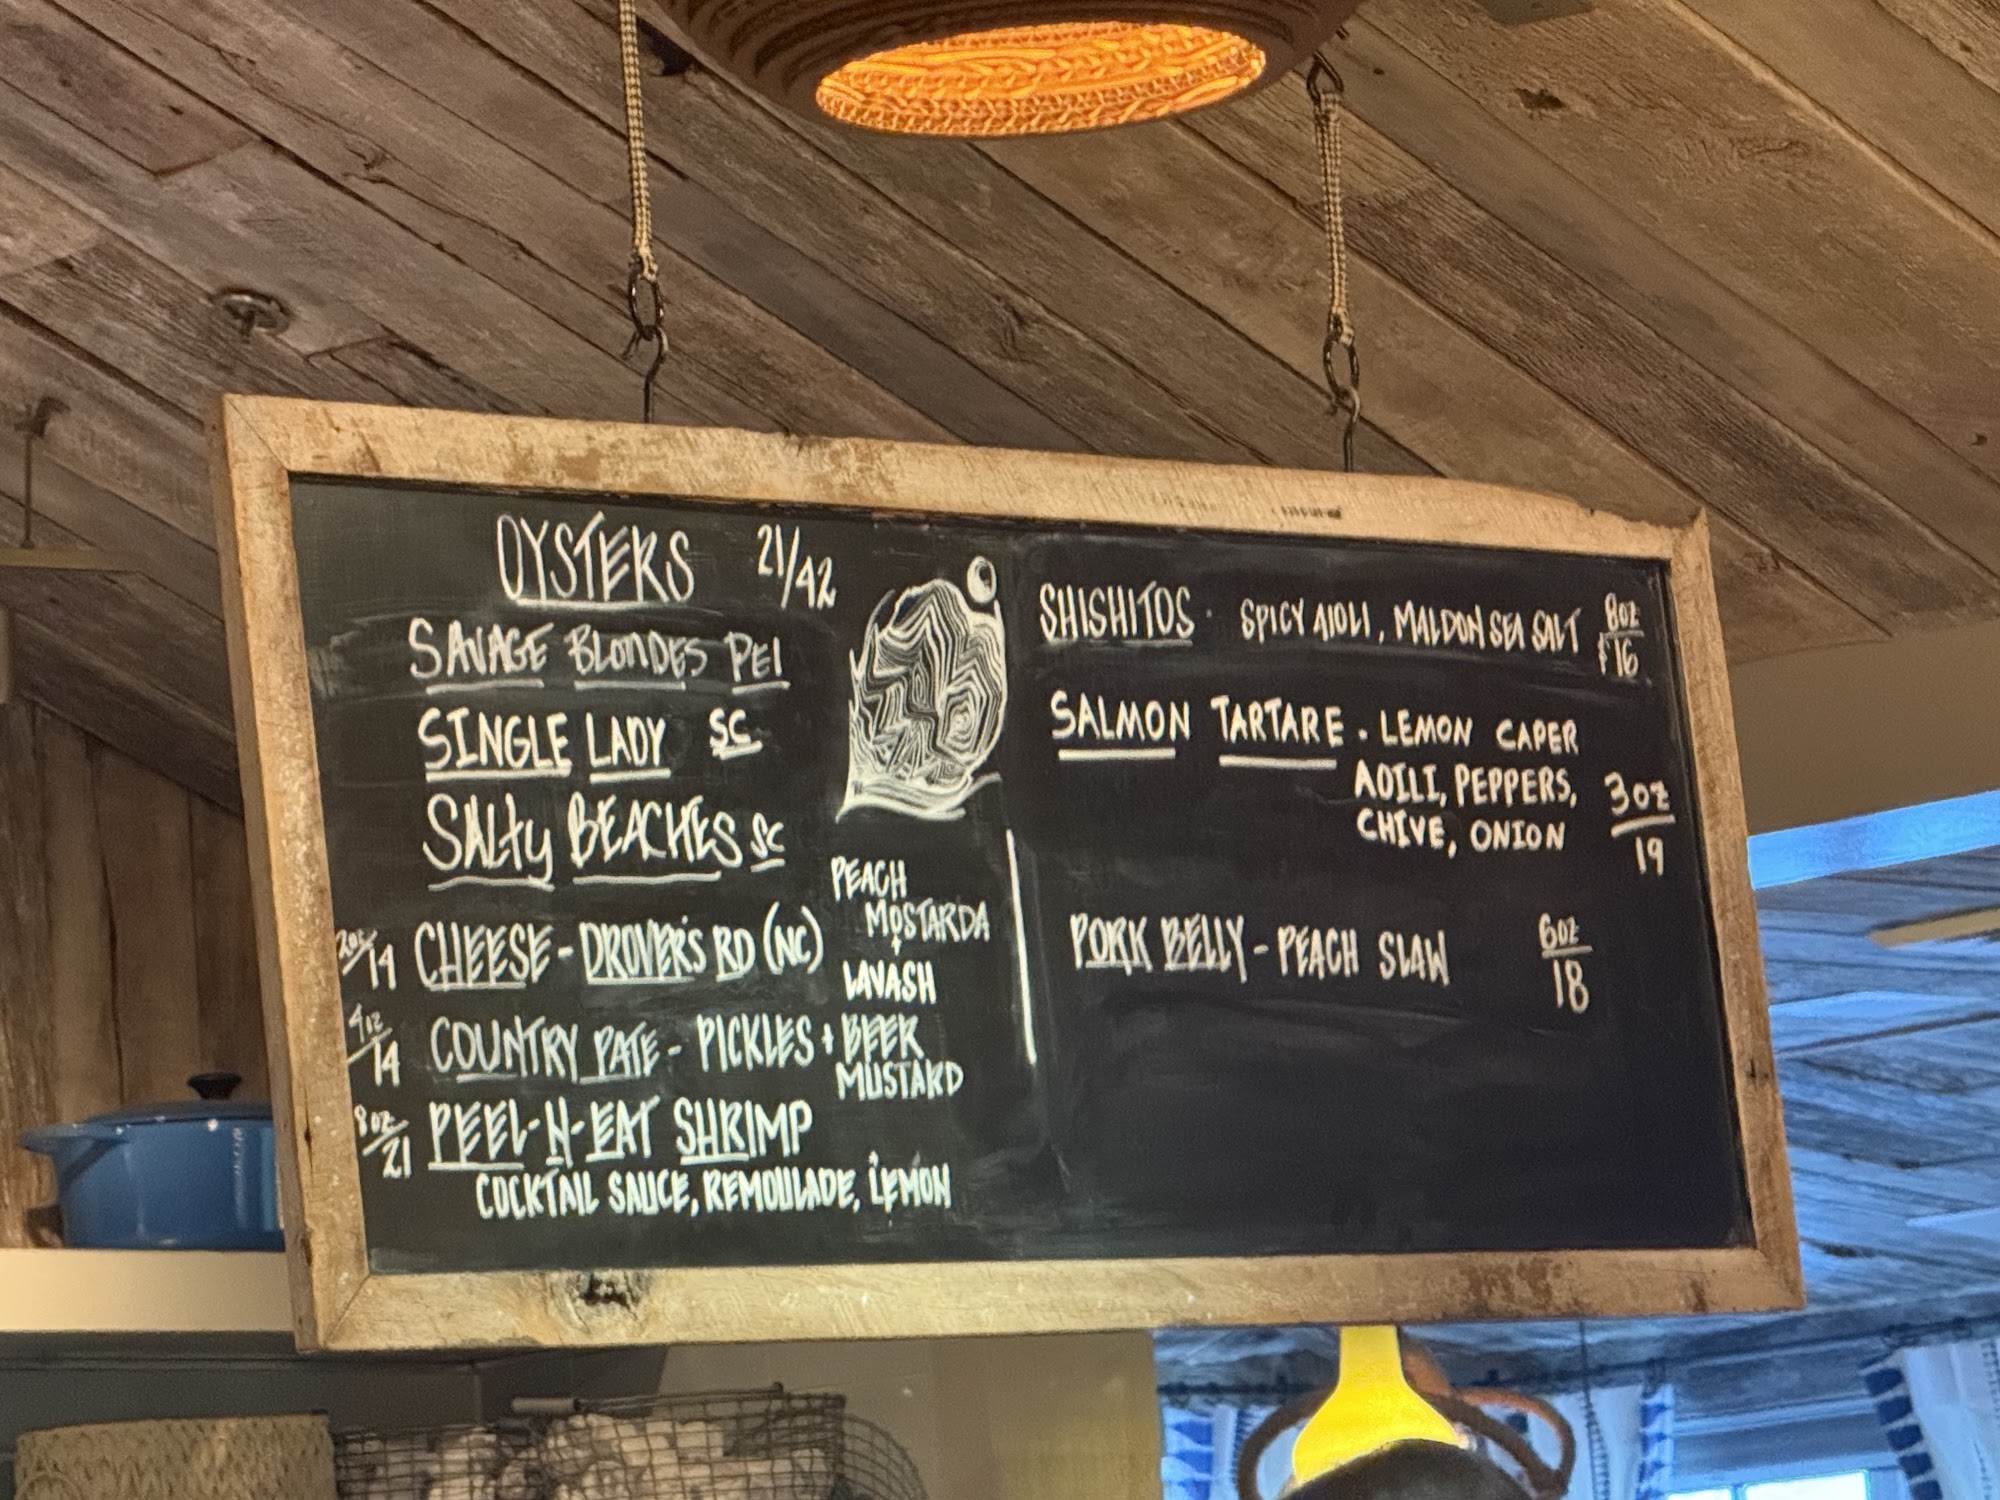 OYSTERS 21/42
SAVAGE BLONDES PEI
SINGLE LADY SC
SALTY BEACHES SC
2oz/14 CHEESE - DROVER'S RD (NC)
PEACH
MOSTARDA
+
LAVASH
4oz/14 COUNTRY PATE - PICKLES + BEER
MUSTARD
8oz/21 PEEL-N-EAT SHRIMP
COCKTAIL SAUCE, REMOULADE, LEMON
SHISHITOS - SPICY AIOLI, MALDON SEA SALT 8oz/$16
SALMON TARTARE - LEMON CAPER
AOILI, PEPPERS,
CHIVE, ONION 3oz/19
PORK BELLY - PEACH SLAW 6oz/18